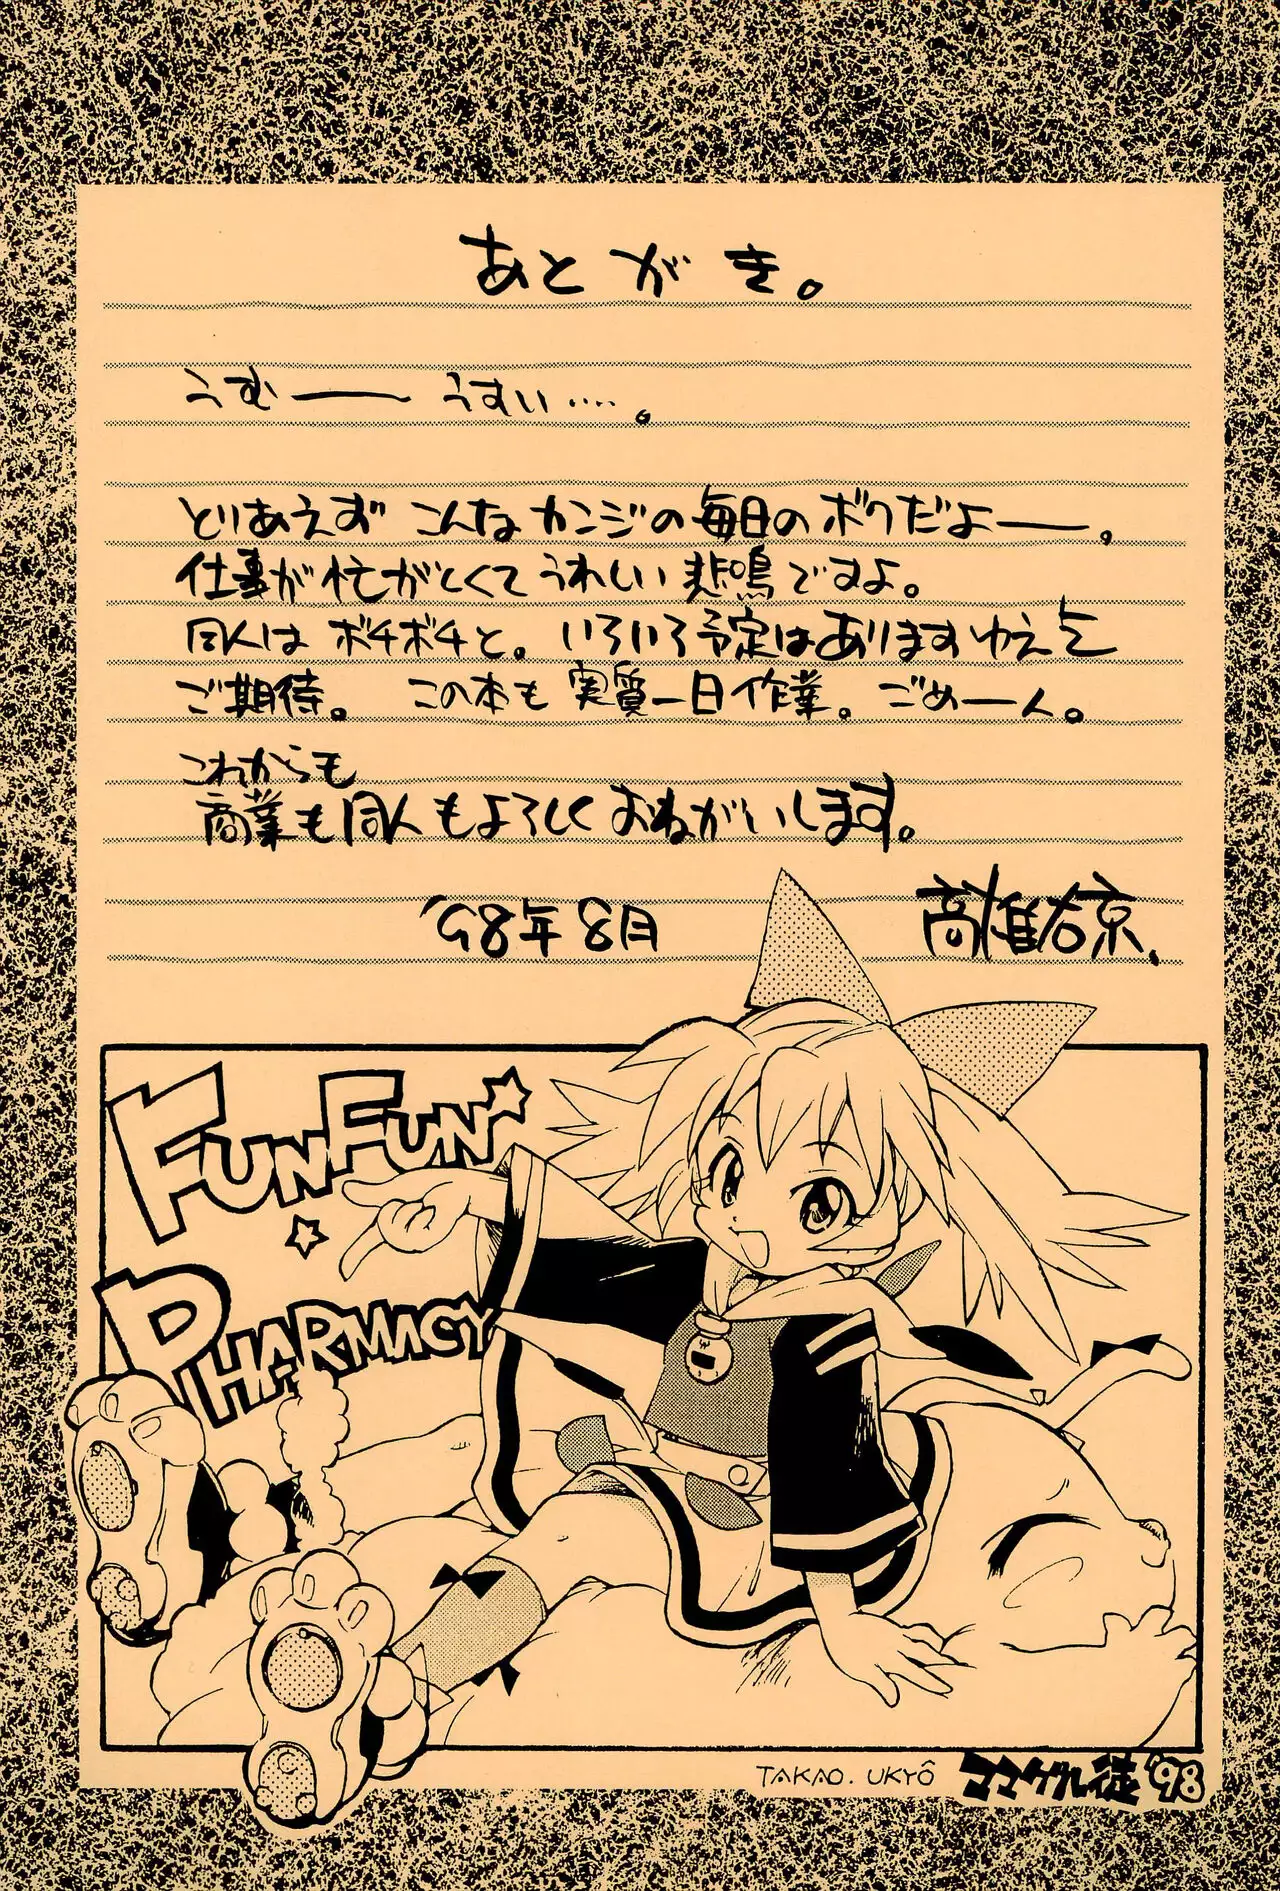 あとがき。
うむーーうすい‥‥。
とりあえず こんなカンジの毎日のボクだよーー。
仕事が忙がしくてうれしい悲鳴ですよ。
同人はボチボチと。いろいろ予定はありますゆえ
ご期待。 この本も実質一日作業。ごめーん。
これからも
商業も同人もよろしくおねがいします。
'98年8月 高雄右京、
FUN FUN
PHARMACY
TAKAO. UKYÔ ママゲル徒'98